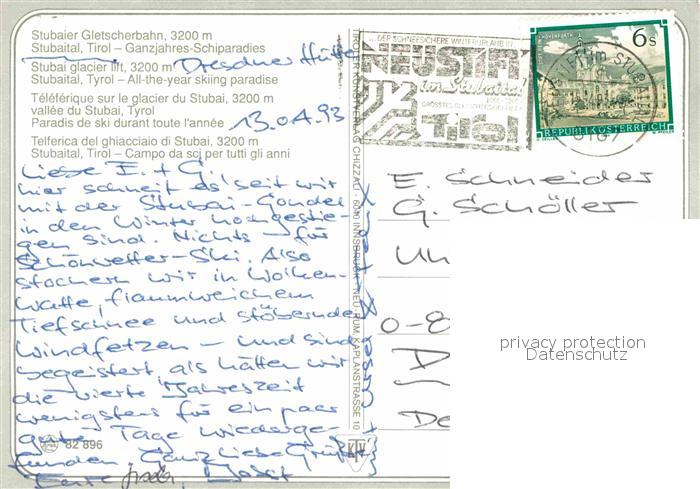 Stubaier Gletscherbahn, 3200 m
Stubaital, Tirol – Ganzjahres-Schiparadies
Dresdner Hütte
Stubai glacier lift, 3200 m
Stubaital, Tyrol – All-the-year skiing paradise
Téléférique sur le glacier du Stubai, 3200 m
vallée du Stubai, Tyrol
Paradis de ski durant toute l'année
13.04.93
Telferica del ghiacciaio di Stubai, 3200 m
Stubaital, Tirol – Campo da sci per tutti gli anni
Liebe E. + G.!
hier schneit es seit wir
mit der Stubai-Gondel
in den Winter hochgestie-
gen sind. Nichts für
Schönwetter-Ski. Also
stochern wir in Wolken-
watte, flaumweichem
Tiefschnee und stöbernden
Windfetzen – und sind
begeistert, als hätten wir
die vierte Jahreszeit
wenigstens für ein paar
gute Tage wiederge-
funden. Ganz liebe Grüße
Eure
82 896
TIROLER KUNSTVERLAG CHIZZALI · 6020 INNSBRUCK - NEU-RUM, KAPLANSTRASSE 10
... DER SCHNEESICHERE WINTERURLAUB IN ...
NEUSTIFT
im Stubaital
Tirol
6 s
REPUBLIK ÖSTERREICH
E. Schneider
G. Schöller
O-8
D
De
privacy protection
Datenschutz